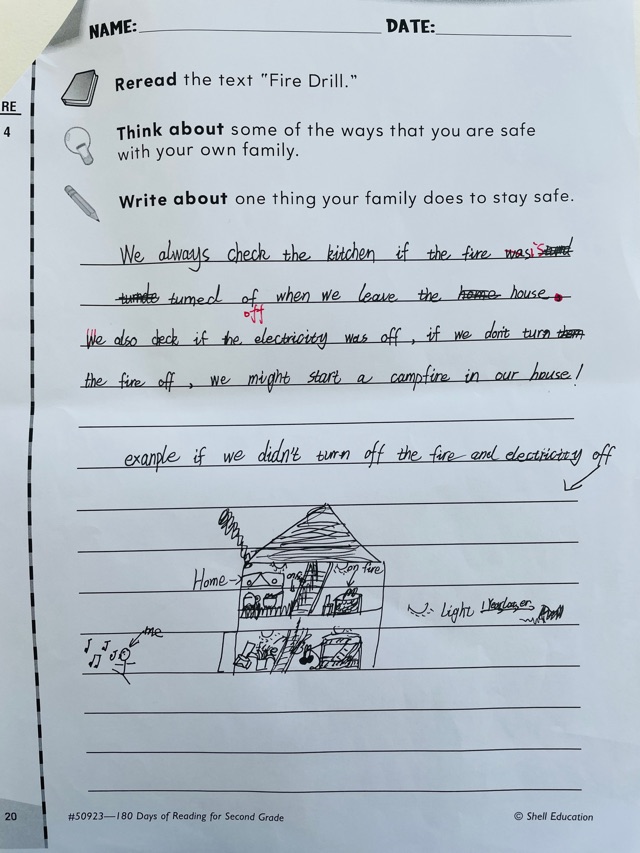 NAME: DATE:
Reread the text "Fire Drill."
RE
4
Think about some of the ways that you are safe
with your own family.
Write about one thing your family does to stay safe.
We always check the kitchen if the fire was is
turned of when we leave the home house.
off
We also deck if the electricity was off, if we don't turn them
the fire off, we might start a campfire in our house!
exanple if we didn't turn off the fire and electricity off
Home
on fire
Light
me
20
#50923—180 Days of Reading for Second Grade
© Shell Education